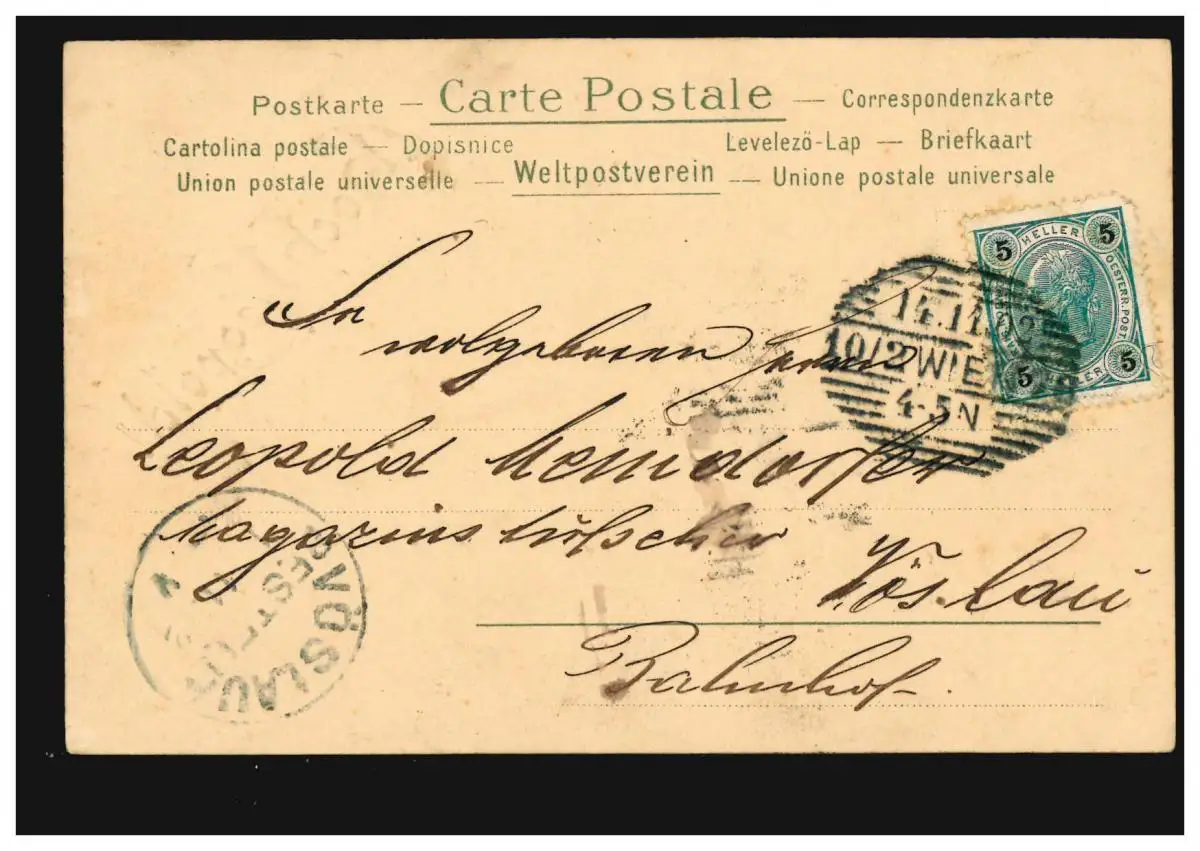 Postkarte — Carte Postale — Correspondenzkarte
Cartolina postale — Dopisnice Levelező-Lap — Briefkaart
Union postale universelle — Weltpostverein — Unione postale universale
5 HELLER 5
OESTERR. POST
5 HELLER 5
14.11.
10/2 WIEN
4-5N
An
wolgeboren Herrn
Leopold
Magazins
Vöslau
Bahnhof.
VÖSLAU
BESTELLT